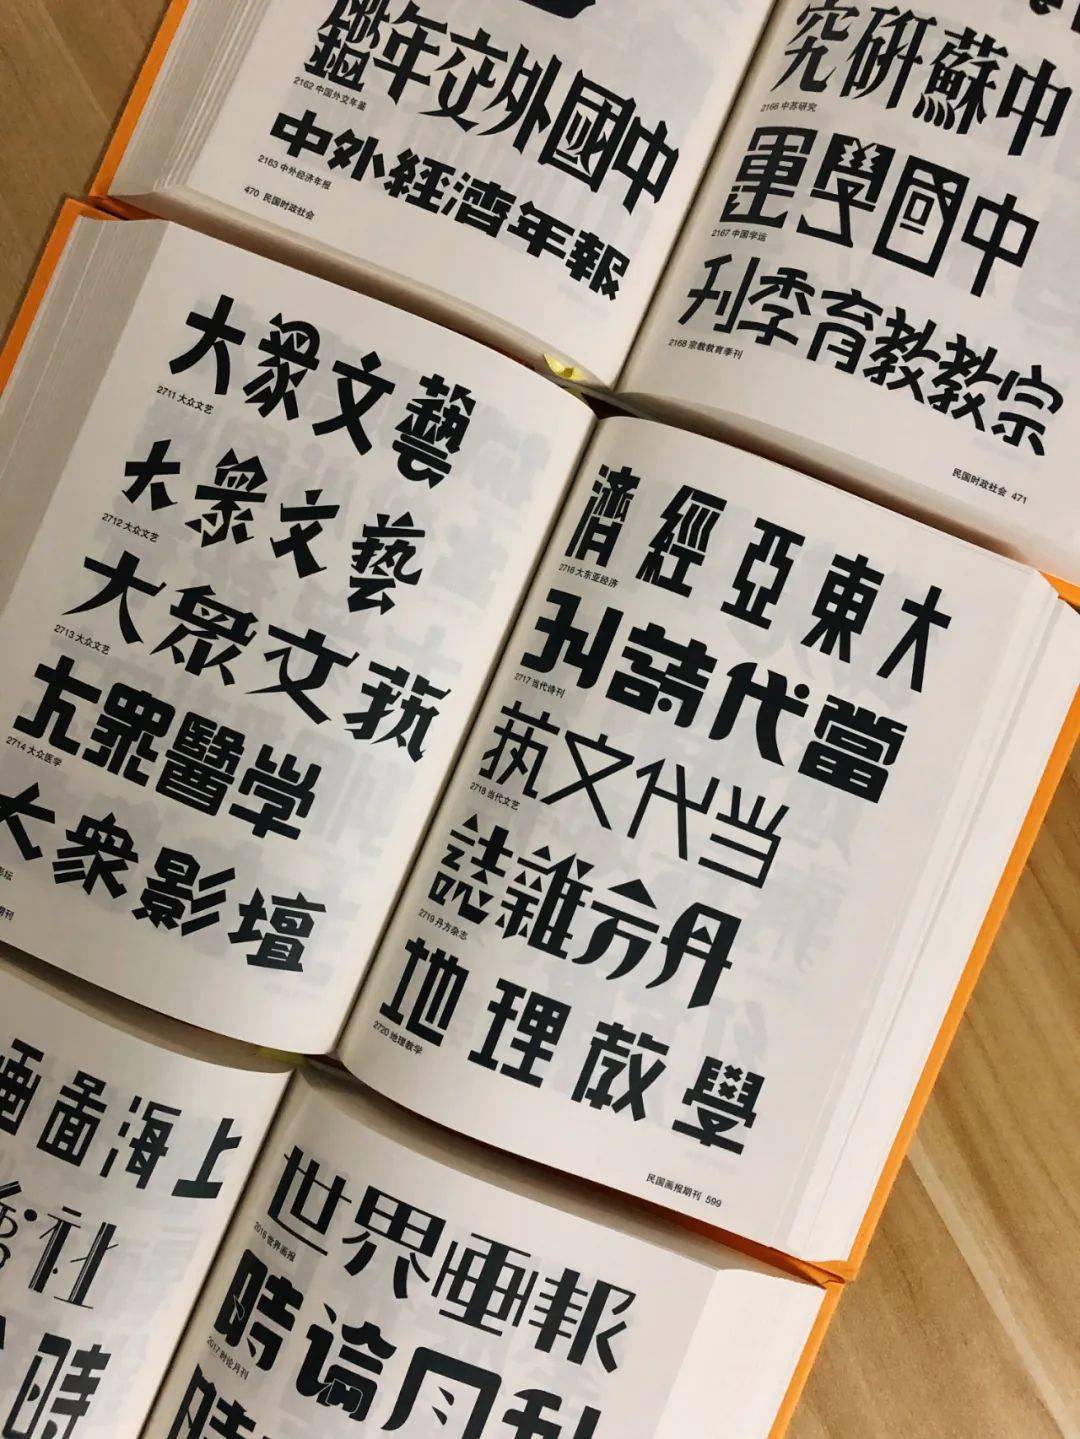 鑑年交外國中
2162 中国外交年鉴
中外經濟年報
2163 中外经济年报
470 民国时政社会
究研蘇中
2166 中苏研究
運學國中
2167 中国学运
刊季育教教宗
2168 宗教教育季刊
民国时政社会 471
大眾文藝
2711 大众文艺
大眾文藝
2712 大众文艺
大眾文执
2713 大众文艺
大眾醫学
2714 大众医学
大眾影壇
影坛
期刊
濟經亞東大
2716 大东亚经济
刊詩代當
2717 当代诗刊
执文代当
2718 当代文艺
誌雜方丹
2719 丹方杂志
地理教學
2720 地理教学
民国画报期刊 599
畫海上
社
時
世界画報
2016 世界画报
時論月刊
2017 时论月刊
時